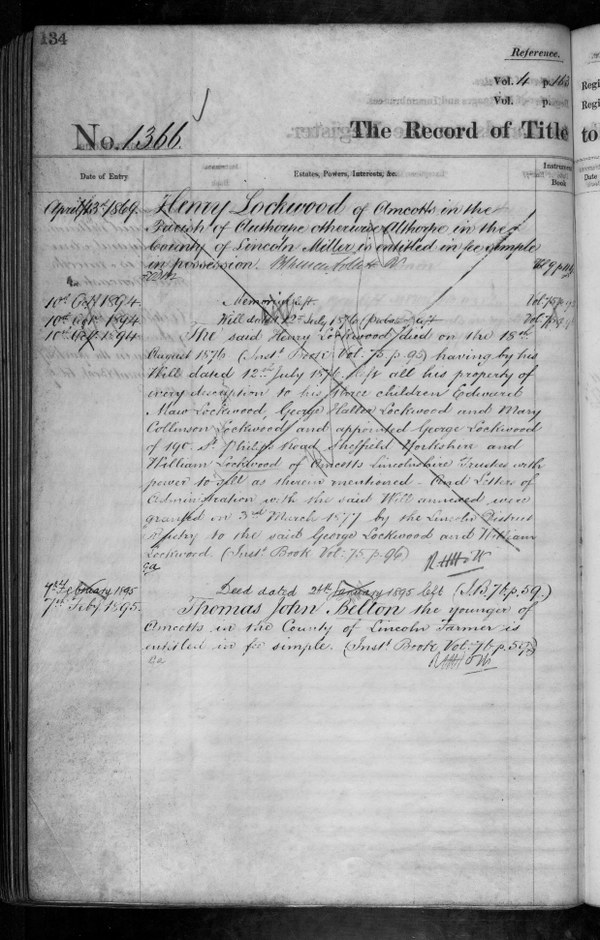 134
Reference.
Vol. 4 p. 163
Vol. p.
No. 1366
The Record of Title
to
Date of Entry
Estates, Powers, Interests, &c.
Instrument Book
April 13th 1869.
Henry Lockwood of Amcotts in the
Parish of Authorpe otherwise Althorpe in the
County of Lincoln Miller is entitled in fee simple
in possession.
10th Octr 1894. Memorial left Vol. 75 p.
10th Octr 1894 Will dated 12th July 1876 left Vol. 75 p.
10th Octr 1894 The said Henry Lockwood died on the 18th
August 1876 (Inst. Book Vol. 75 p. 95) having by his
Will dated 12th July 1876 left all his property of
every description to his three children Edward
Maw Lockwood, George Hatter Lockwood and Mary
Collinson Lockwood and appointed George Lockwood
of 190 St. Philips Road Sheffield Yorkshire and
William Lockwood of Amcotts Lincolnshire Trustees with
power to sell as therein mentioned – And Letters of
Administration with the said Will annexed were
granted on 3rd March 1877 by the Lincoln District
Registry to the said George Lockwood and William
Lockwood (Inst. Book Vol. 75 p. 96)
4th February 1895 Deed dated January 1895 left (I.B. 76 p. 59.)
7th Feby 1895. Thomas John Belton the younger of
Amcotts in the County of Lincoln Farmer is
entitled in fee simple. (Inst. Book Vol. 76 p. 59)